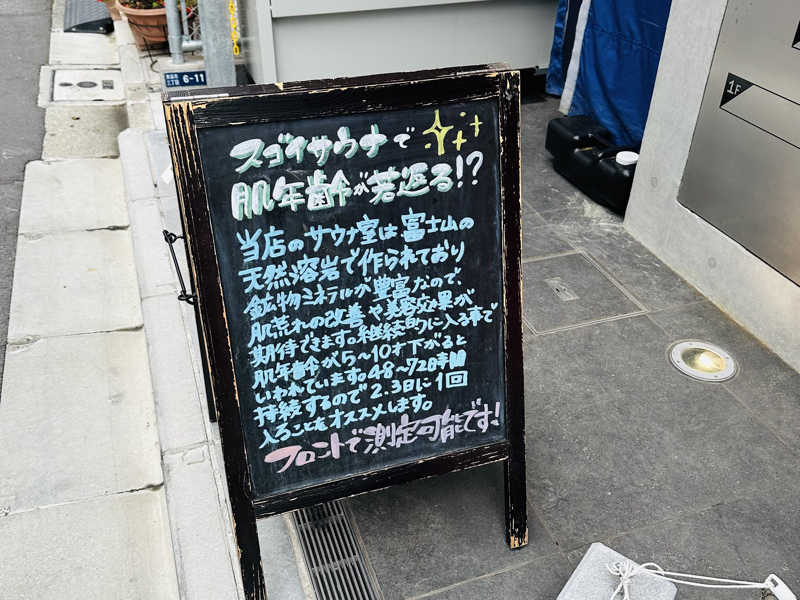 スゴイサウナで
肌年齢が若返る!?
当店のサウナ室は富士山の
天然溶岩で作られており
鉱物ミネラルが豊富なので、
肌荒れの改善や美容効果が
期待できます。継続的に入る事で
肌年齢が5〜10才下がると
いわれています。48〜72時間
持続するので2.3日に1回
入ることをオススメします。
フロントで測定可能です!
6-11
1F